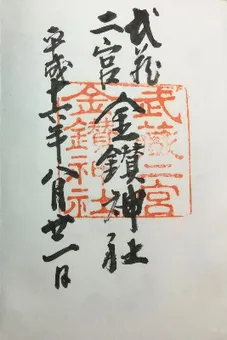 武蔵
二宮
金鑚神社
平成十年八月廿一日
武藏二宮
金鑚神社